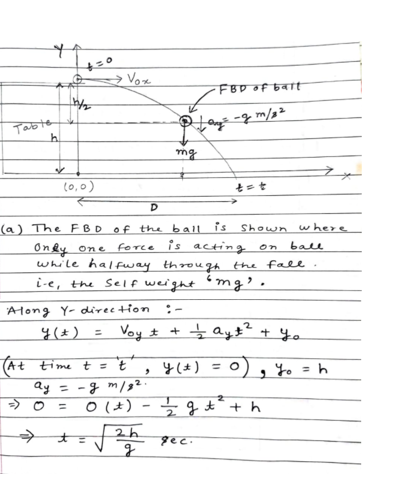 Y
t=0
Vox
FBD of ball
h/2
ay = -g m/s²
Table
h
mg
x
(0,0)
t = t
D
(a) The FBD of the ball is shown where
only one force is acting on ball
while halfway through the fall.
i-e, the self weight 'mg'.
Along Y-direction :-
y(t) = Voy t + 1/2 ay t² + yo
(At time t = 't', y(t) = 0), yo = h
ay = -g m/s².
⇒ 0 = 0(t) - 1/2 g t² + h
⇒ t = √(2h/g) sec.